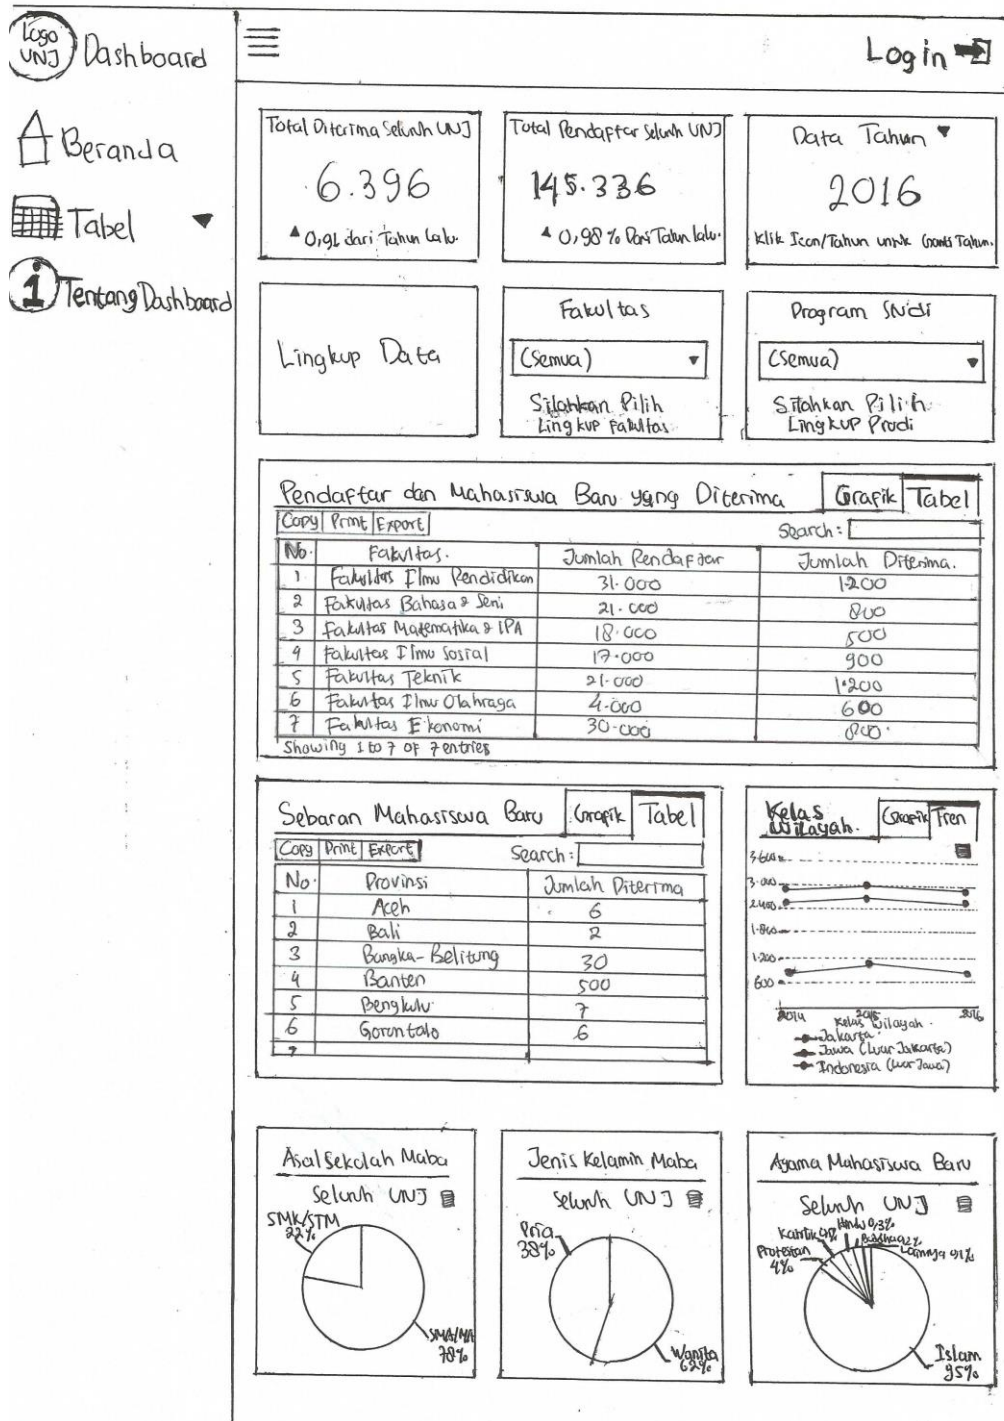 Logo
UNJ
Dashboard
Login
Beranda
Tabel
Tentang Dashboard
Total Diterima Seluruh UNJ
6.396
0,91 dari Tahun Lalu.
Total Pendaftar Seluruh UNJ
145.336
0,98 % Dari Tahun Lalu.
Data Tahun
2016
Klik Icon/Tahun untuk Ganti Tahun.
Lingkup Data
Fakultas
(Semua)
Silahkan Pilih
Lingkup Fakultas
Program Studi
(Semua)
Silahkan Pilih
Lingkup Prodi
Pendaftar dan Mahasiswa Baru yang Diterima
Grafik Tabel
Copy Print Export
Search:
No. Fakultas. Jumlah Pendaftar Jumlah Diterima.
1 Fakultas Ilmu Pendidikan 31.000 1.200
2 Fakultas Bahasa & Seni 21.000 800
3 Fakultas Matematika & IPA 18.000 500
4 Fakultas Ilmu Sosial 17.000 900
5 Fakultas Teknik 21.000 1.200
6 Fakultas Ilmu Olahraga 4.000 600
7 Fakultas Ekonomi 30.000 800
Showing 1 to 7 of 7 entries
Sebaran Mahasiswa Baru
Grafik Tabel
Copy Print Export
Search:
No. Provinsi Jumlah Diterima
1 Aceh 6
2 Bali 2
3 Bangka-Belitung 30
4 Banten 500
5 Bengkulu 7
6 Gorontalo 6
7
Kelas
Wilayah.
Grafik Tren
3.600
3.000
2.400
1.800
1.200
600
2014 2015 2016
Kelas Wilayah.
Jakarta
Jawa (Luar Jakarta)
Indonesia (Luar Jawa)
Asal Sekolah Maba
Seluruh UNJ
SMK/STM
22%
SMA/MA
78%
Jenis Kelamin Maba
Seluruh UNJ
Pria
38%
Wanita
62%
Agama Mahasiswa Baru
Seluruh UNJ
Hindu 0,3%
Buddha 0,2%
Lainnya 0,1%
Protestan
4%
Islam
95%